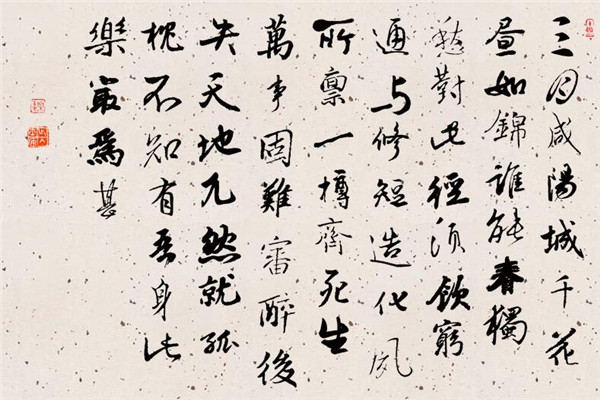 三月咸陽城千花
晝如錦誰能春獨
愁對此徑須飲窮
通与修短造化夙
所稟一樽齊死生
萬事固難審醉後
失天地兀然就孤
枕不知有吾身此
樂最爲甚